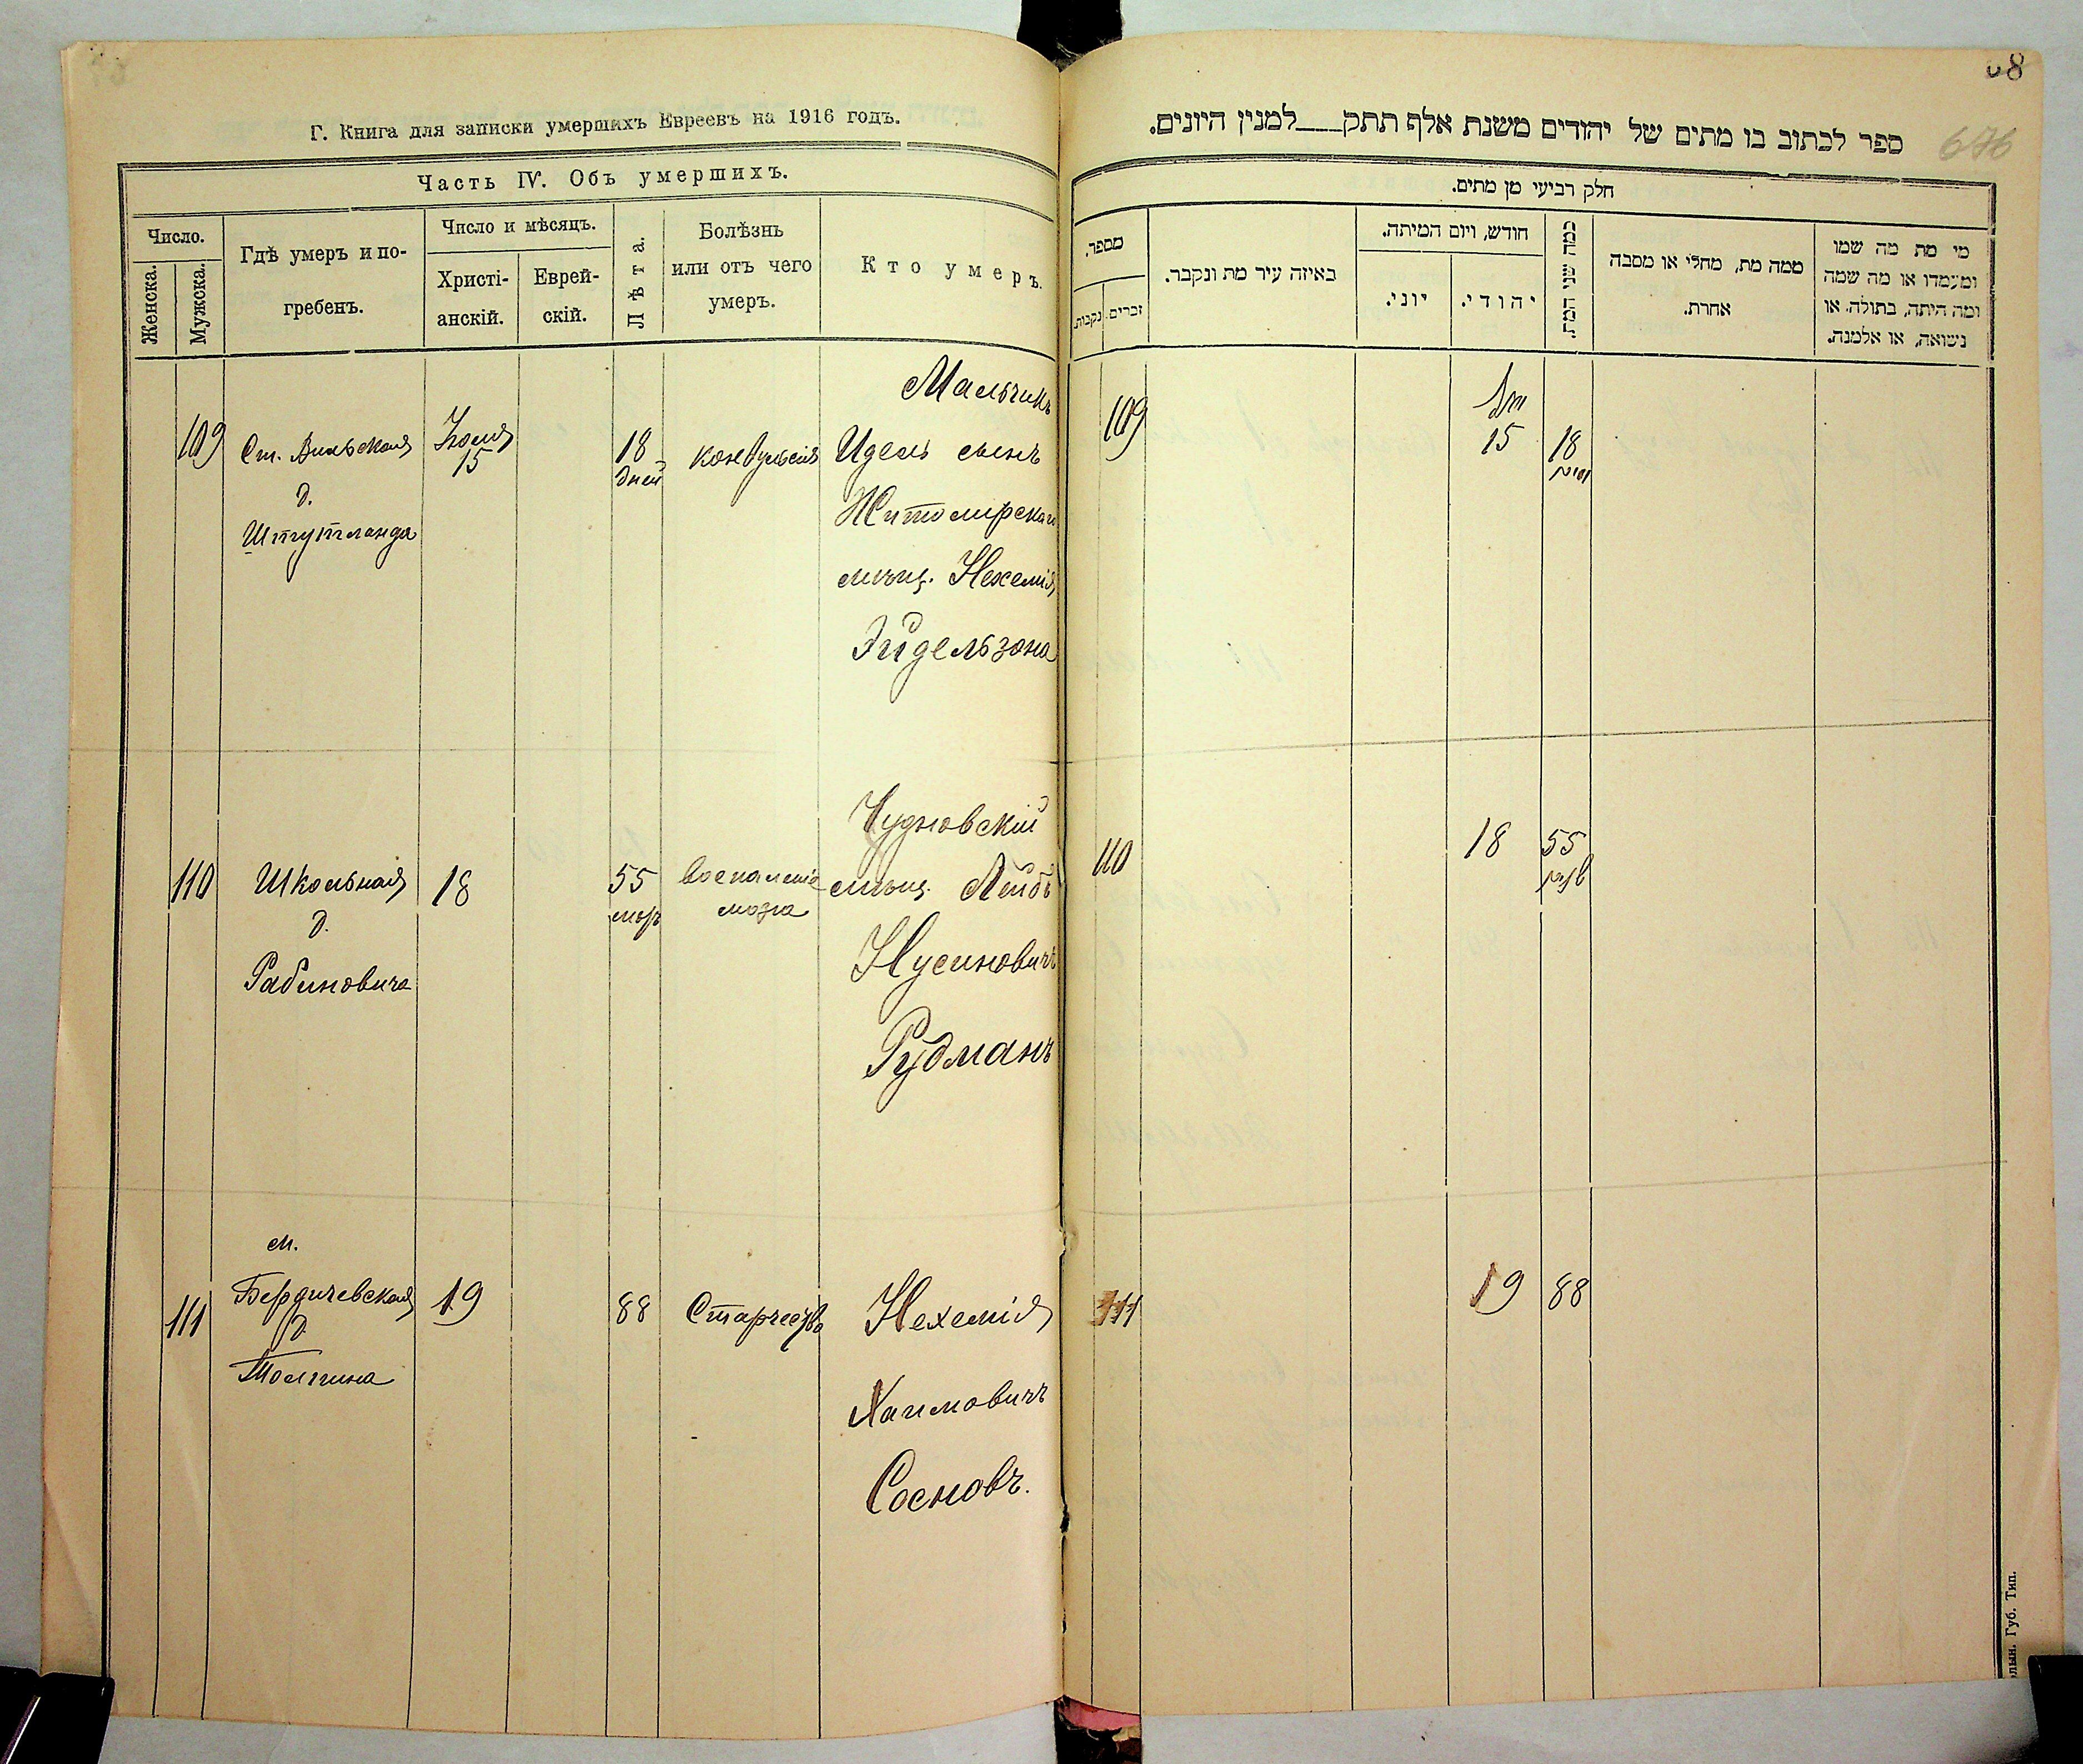 Г. Книга для записки умершихъ Евреевъ на 1916 годъ.
Часть IV. Объ умершихъ.
Число.
Женска.
Мужска.
Гдѣ умеръ и по-
гребенъ.
Число и мѣсяцъ.
Христі-
анскій.
Еврей-
скій.
Лѣта.
Болѣзнь
или отъ чего
умеръ.
Кто умеръ.
109
Ст. Вильская
д.
Штутланда
Іюля
15
18
дней
конвульсія
Мальчикъ
Идель сынъ
Житомирскаго
мѣщ. Нехемія
Эйдельзона
110
Школьная
д.
Рабиновича
18
55
воспаленіе
мозга
Чудновскій
мѣщ. Лейбъ
Нусиновичъ
Рудманъ
111
м.
Бердичевская
д.
19
88
Старчество
Нехемія
Хаимовичъ
Сосновъ.
68
676
ספר לכתוב בו מתים של יהודים משנת אלף תתק___למנין היונים.
חלק רביעי מן מתים.
מספר.
זכרים.
נקבות.
באיזה עיר מת ונקבר.
חודש, ויום המיתה.
יוני.
יהודי.
כמה שני המת.
ממה מת, מחלי או מסבה
אחרת.
מי מת מה שמו
ומעמדו או מה שמה
ומה היתה, בתולה, או
נשואה, או אלמנה.
109
15
18
110
18
55
111
19
88
Губ. Тип.